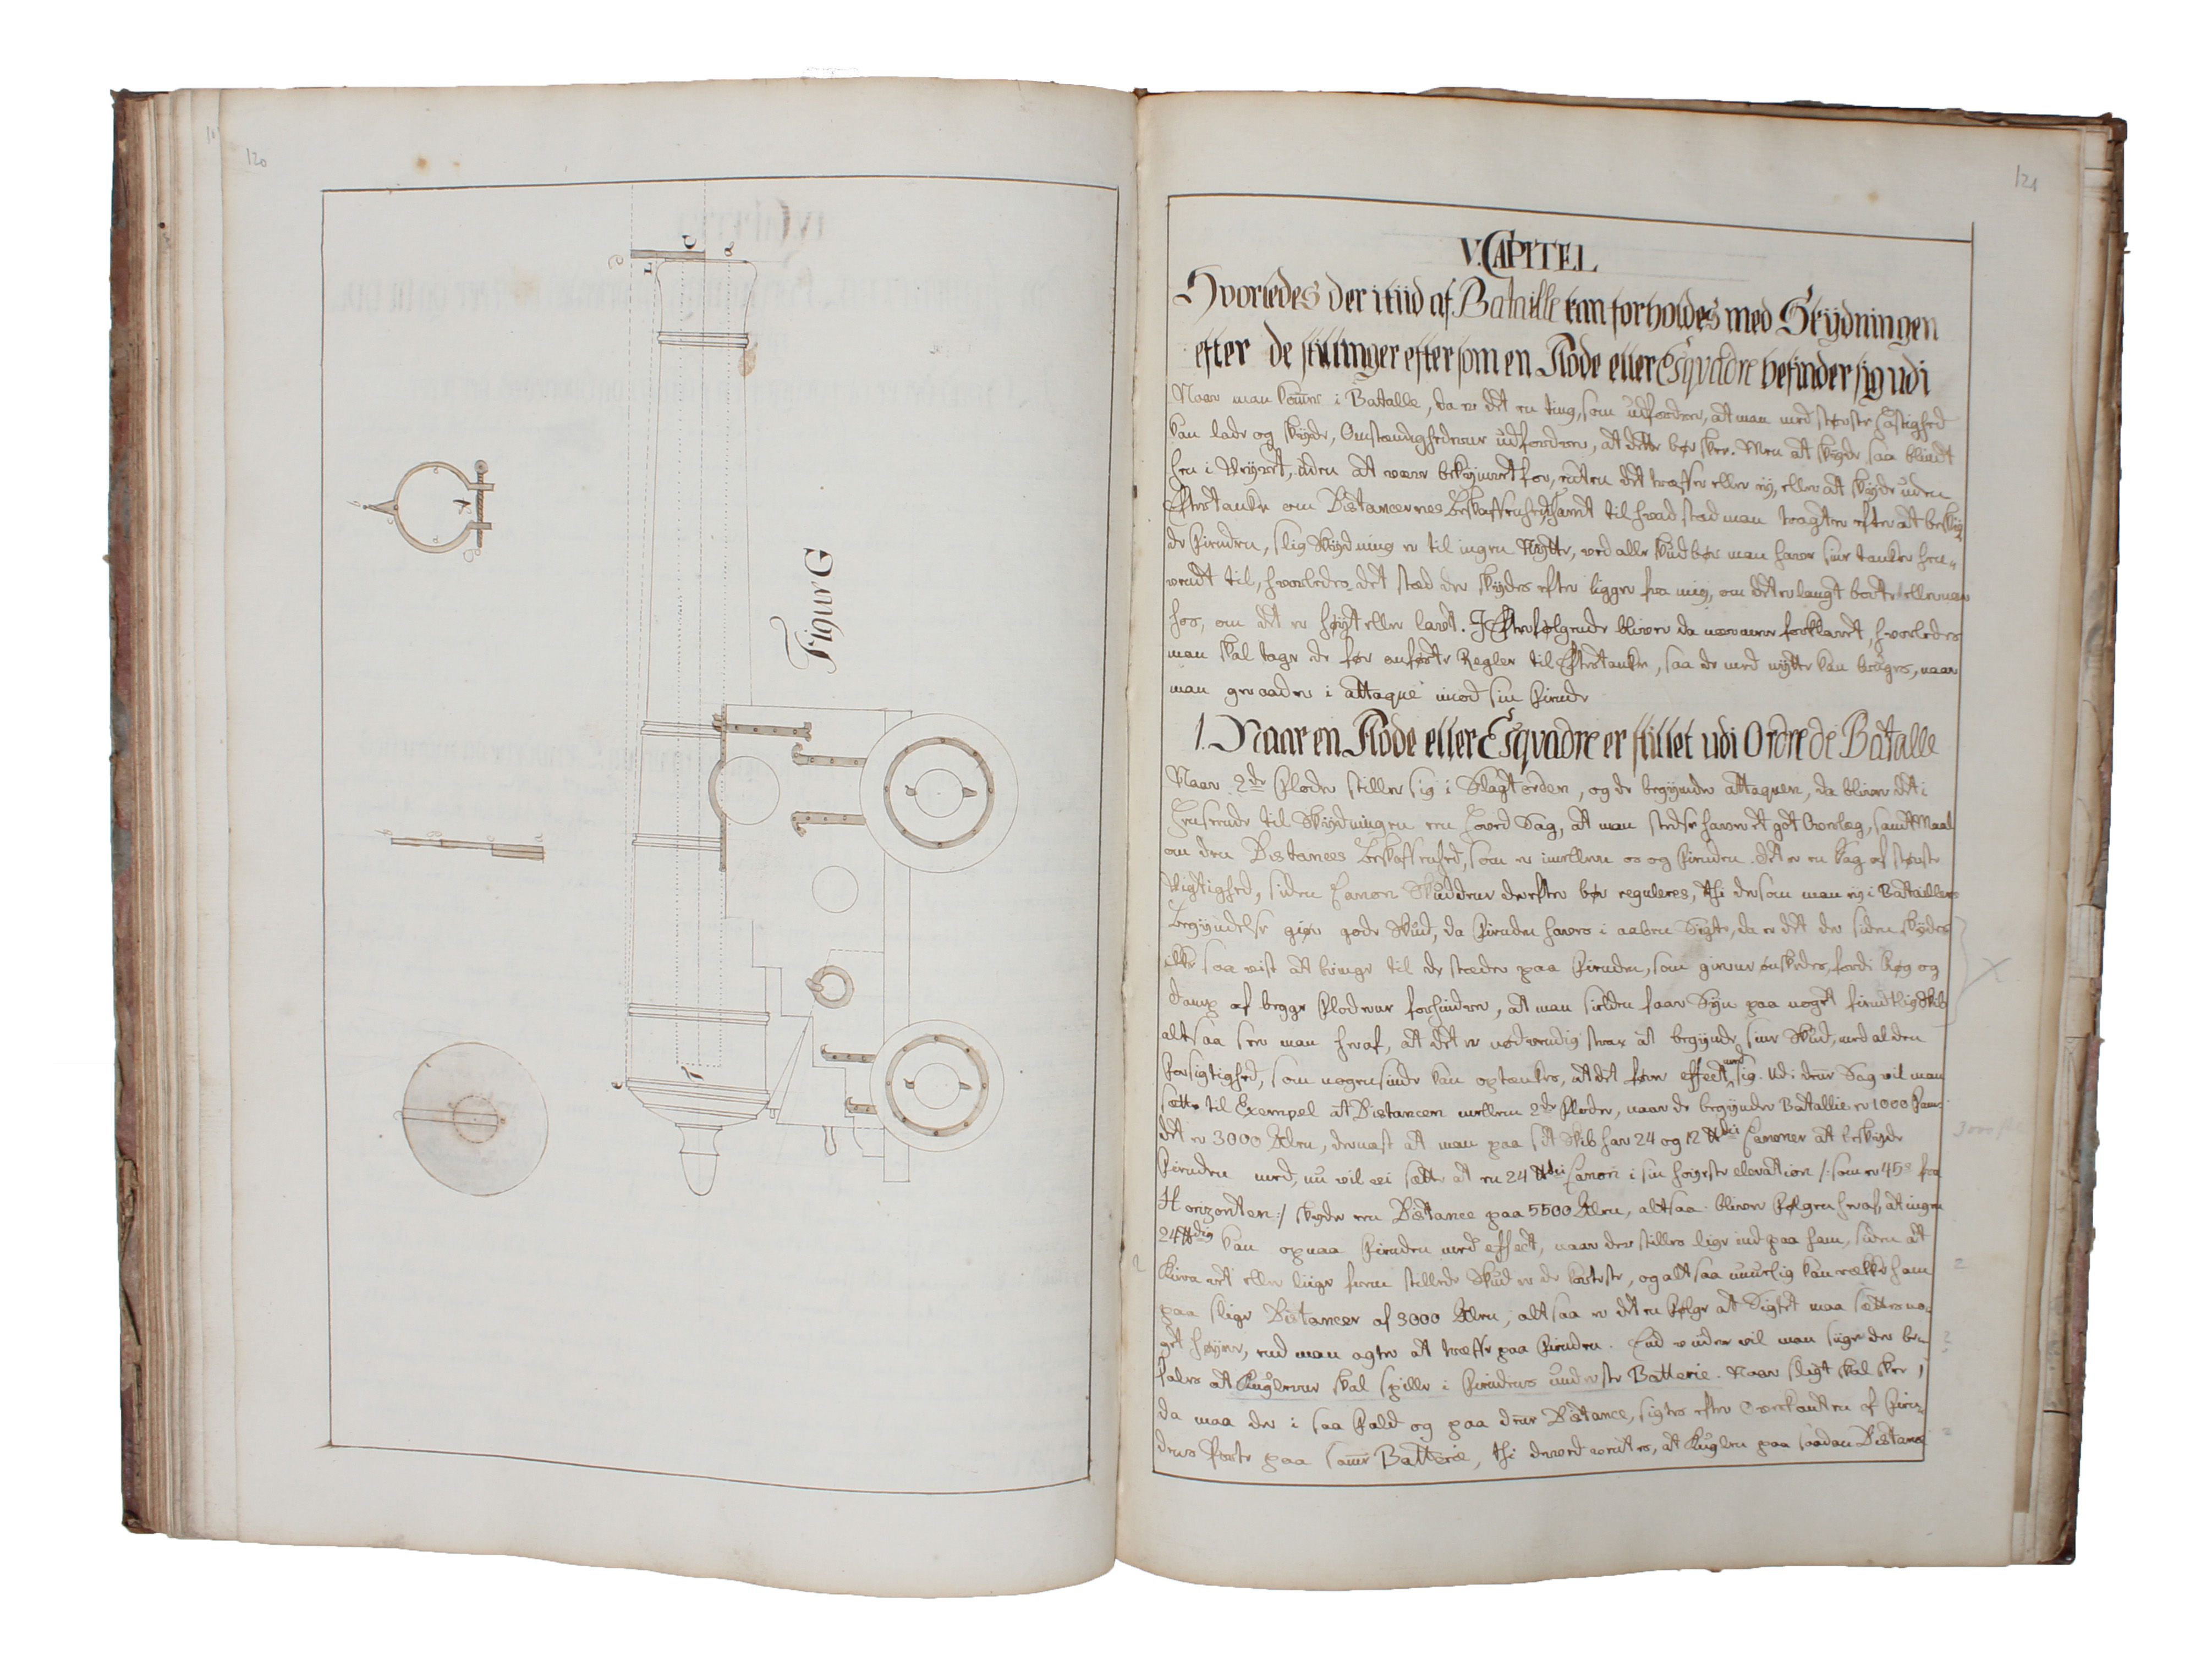 120
Figur G
121
V. CAPITEL
Hvorledes der i tiid af Bataille kan forholdes med Skydningen
efter de stillinger eftersom en Flode eller Esqvadre befinder sig udi
Naar man komer i Batalle, da er det en ting, som udfordrer, at man med største Hastighed
kan lade og skyde, Omstændighederne udfordrer, at dette bør skee. Men at skyde saa blindt
hen i Veyret, uden at være bekymret for, enten det træffer eller ey, eller at skyde uden
Eftertanke om Distancernes Beskaffenhed, samt til hvad stæd man tragter efter at besky
de Fienden, slig Skydning er til ingen Nytte, ved alle Skud bør man have sine tanker hen-
vendt til, hvorledes det stæd der skydes efter ligger fra mig, om det er langt borte eller nær
hos, om det er høyt eller lavt. I Efterfølgende bliver da nærmere forklaret, hvorledes
man skal tage de før anførte Regler til Eftertanke, saa de med nytte kan bruges, naar
man geraader i attaque imod sin Fiende
1. Naar en Flode eller Esqvadre er stillet udi Ordre de Batalle
Naar 2de Floder stiller sig i Slagtorden, og de begynder attaquen, da bliver det i
Henseende til Skydningen een Hoved Sag, at man stedse haver et got Overlæg, samt Maal
om den Distances Beskaffenhed, som er imellem os og Fienden. det er en Sag af største
Vigtighed, siden Canon Skuddene derefter bør reguleres, thi dersom man ey i Bataillens
Begyndelse giør gode Skud, da Fienden haves i aaben Sigte, da er det der siden skydes
ikke saa vist at bringe til de stæder paa Fienden, som gierne ønskedes, fordi Røg og
Damp af begge Floderne forhindrer, at man sielden faar Syn paa noget fiendtlig Skib
altsaa seer man heraf, at det er nødvendig strax at begynde sine Skud, med al den
Forsigtighed, som nogensinde kan optænkes, at det fører effect med sig. Udi denne Sag vil man
sætte til Exempel at Distancen imellem 2de Floder, naar de begynder Batallie er 1000 Favne
det er 3000 Alen, dernæst at man paa sit Skib har 24 og 12 ℔dii Canoner at beskyde
Fienden med, nu vil vi sætte at en 24 ℔dii Canon i sin høieste elevation /: som er 45° fra
Horizonten :/ skyder een Distance paa 5500 Alen, altsaa bliver Følgen heraf, at ingen
24 ℔dig kan opnaa Fienden med effect, naar der stilles lige ind paa ham, siden at
Kierne ret eller liige frem stillede Skud er de korteste, og altsaa umuelig kan række ham
paa slige Distancer af 3000 Alen, altsaa er det en Følge at Sigtet maa sættes no-
get høyere, end man agter at træffe paa Fienden. End videre vil man siige der be-
fales at Kuglerne skal spille i Fiendens underste Batterie. Naar sligt skal skee,
da maa der i saa Fald og paa denne Distance, sigtes efter Overkanten af Fien-
dens Porte paa same Batterie, thi derved ventes, at Kuglen paa saadan Distance